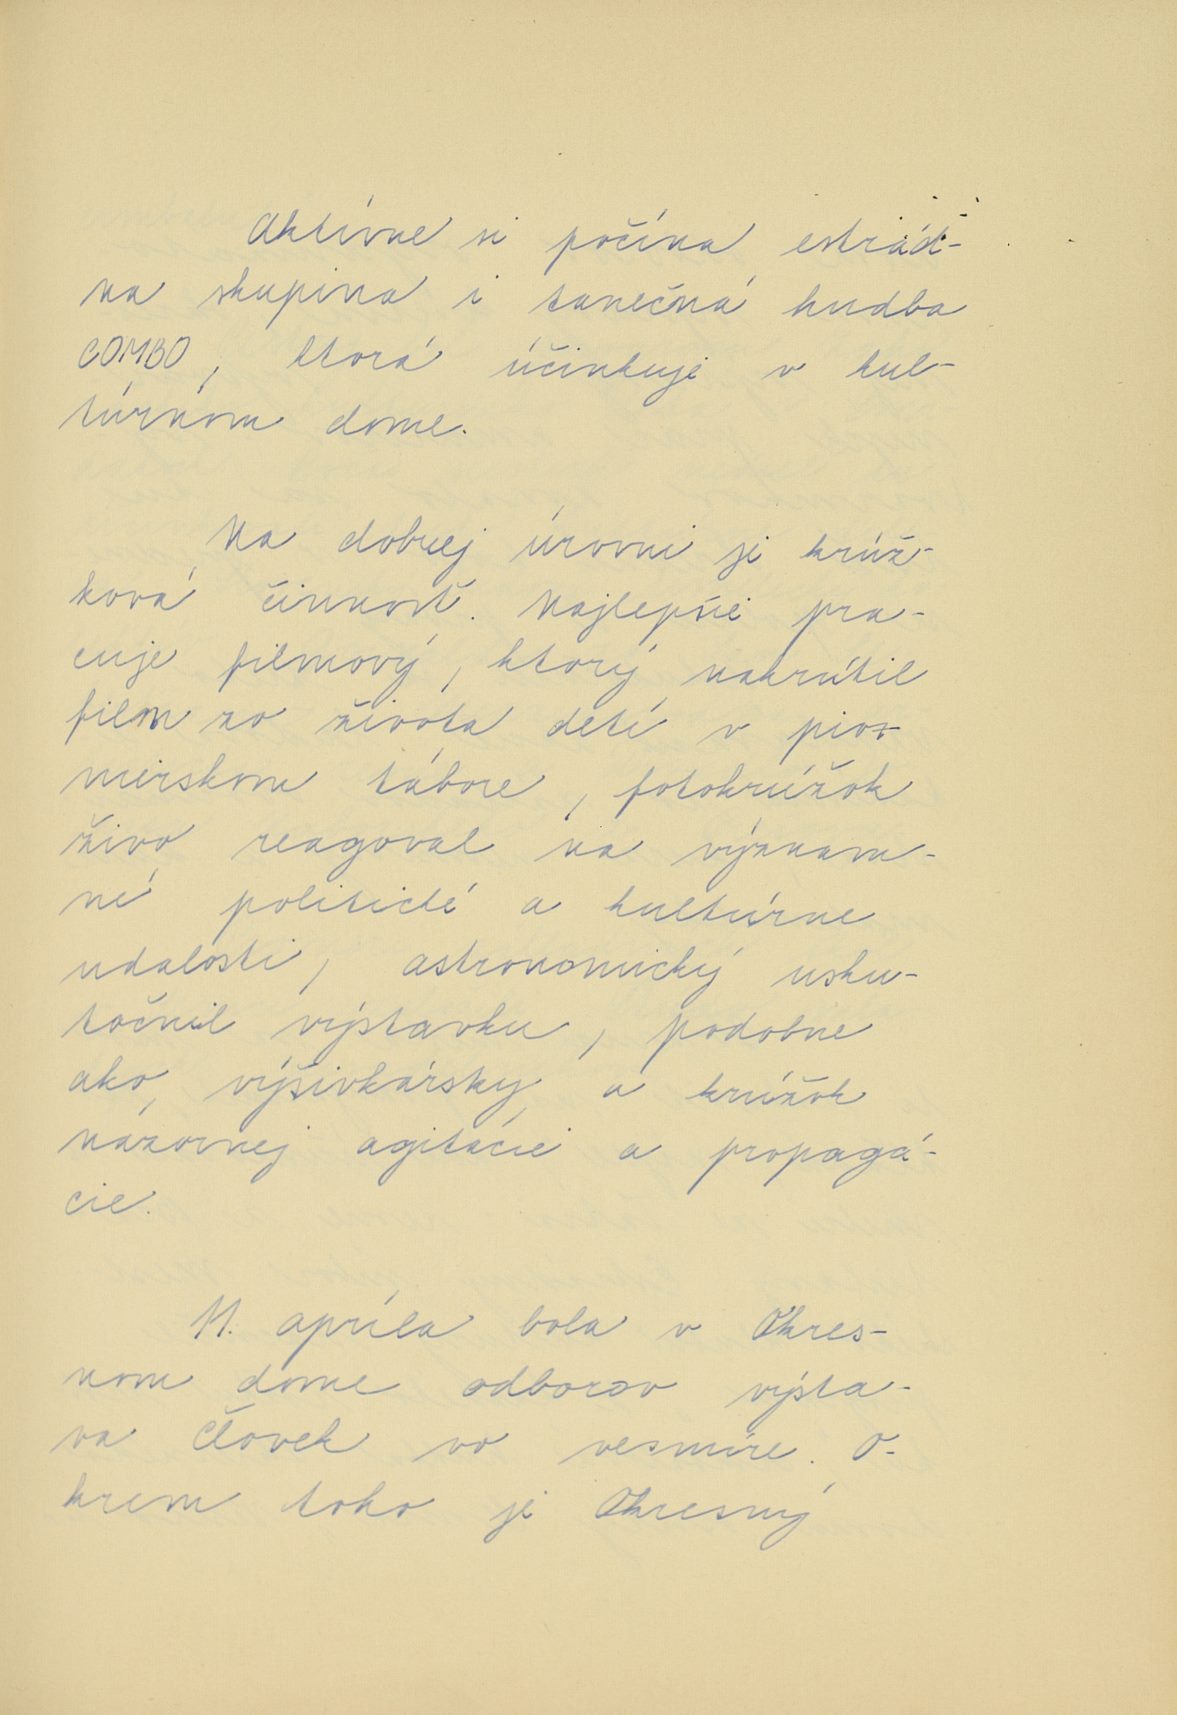 Aktívne si počína estrád-
na skupina i tanečná hudba
COMBO, ktorá účinkuje v kul-
túrnom dome.
Na dobrej úrovni je krúž-
ková činnosť. Najlepšie pra-
cuje filmový, ktorý nakrútil
film zo života detí v pio-
nierskom tábore, fotokrúžok
živo reagoval na význam-
né politické a kultúrne
udalosti, astronomický usku-
točnil výstavku, podobne
ako výšivkársky a krúžok
názornej agitácie a propagá-
cie.
11. apríla bola v Okres-
nom dome odborov výsta-
va Človek vo vesmíre. O-
krem toho je Okresný